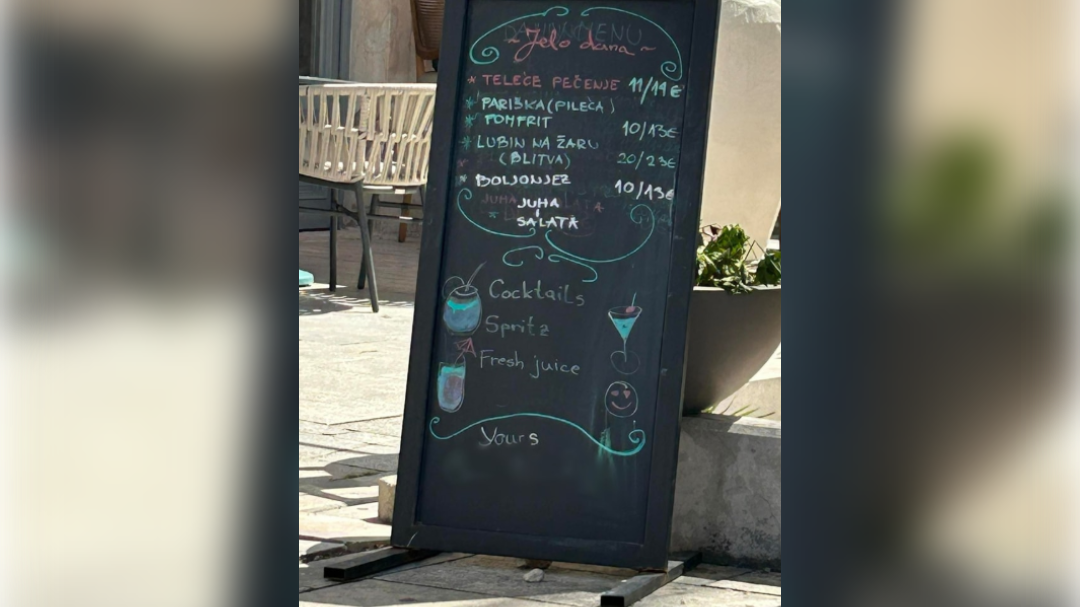 ~ Jelo dana ~
* TELEĆE PEČENJE 11/14€
* PARIŠKA (PILEĆA)
* POMFRIT 10/13€
* LUBIN NA ŽARU
(BLITVA) 20/23€
* BOLJONJEZ 10/13€
JUHA
i
SALATA
Cocktails
Spritz
Fresh juice
Yours